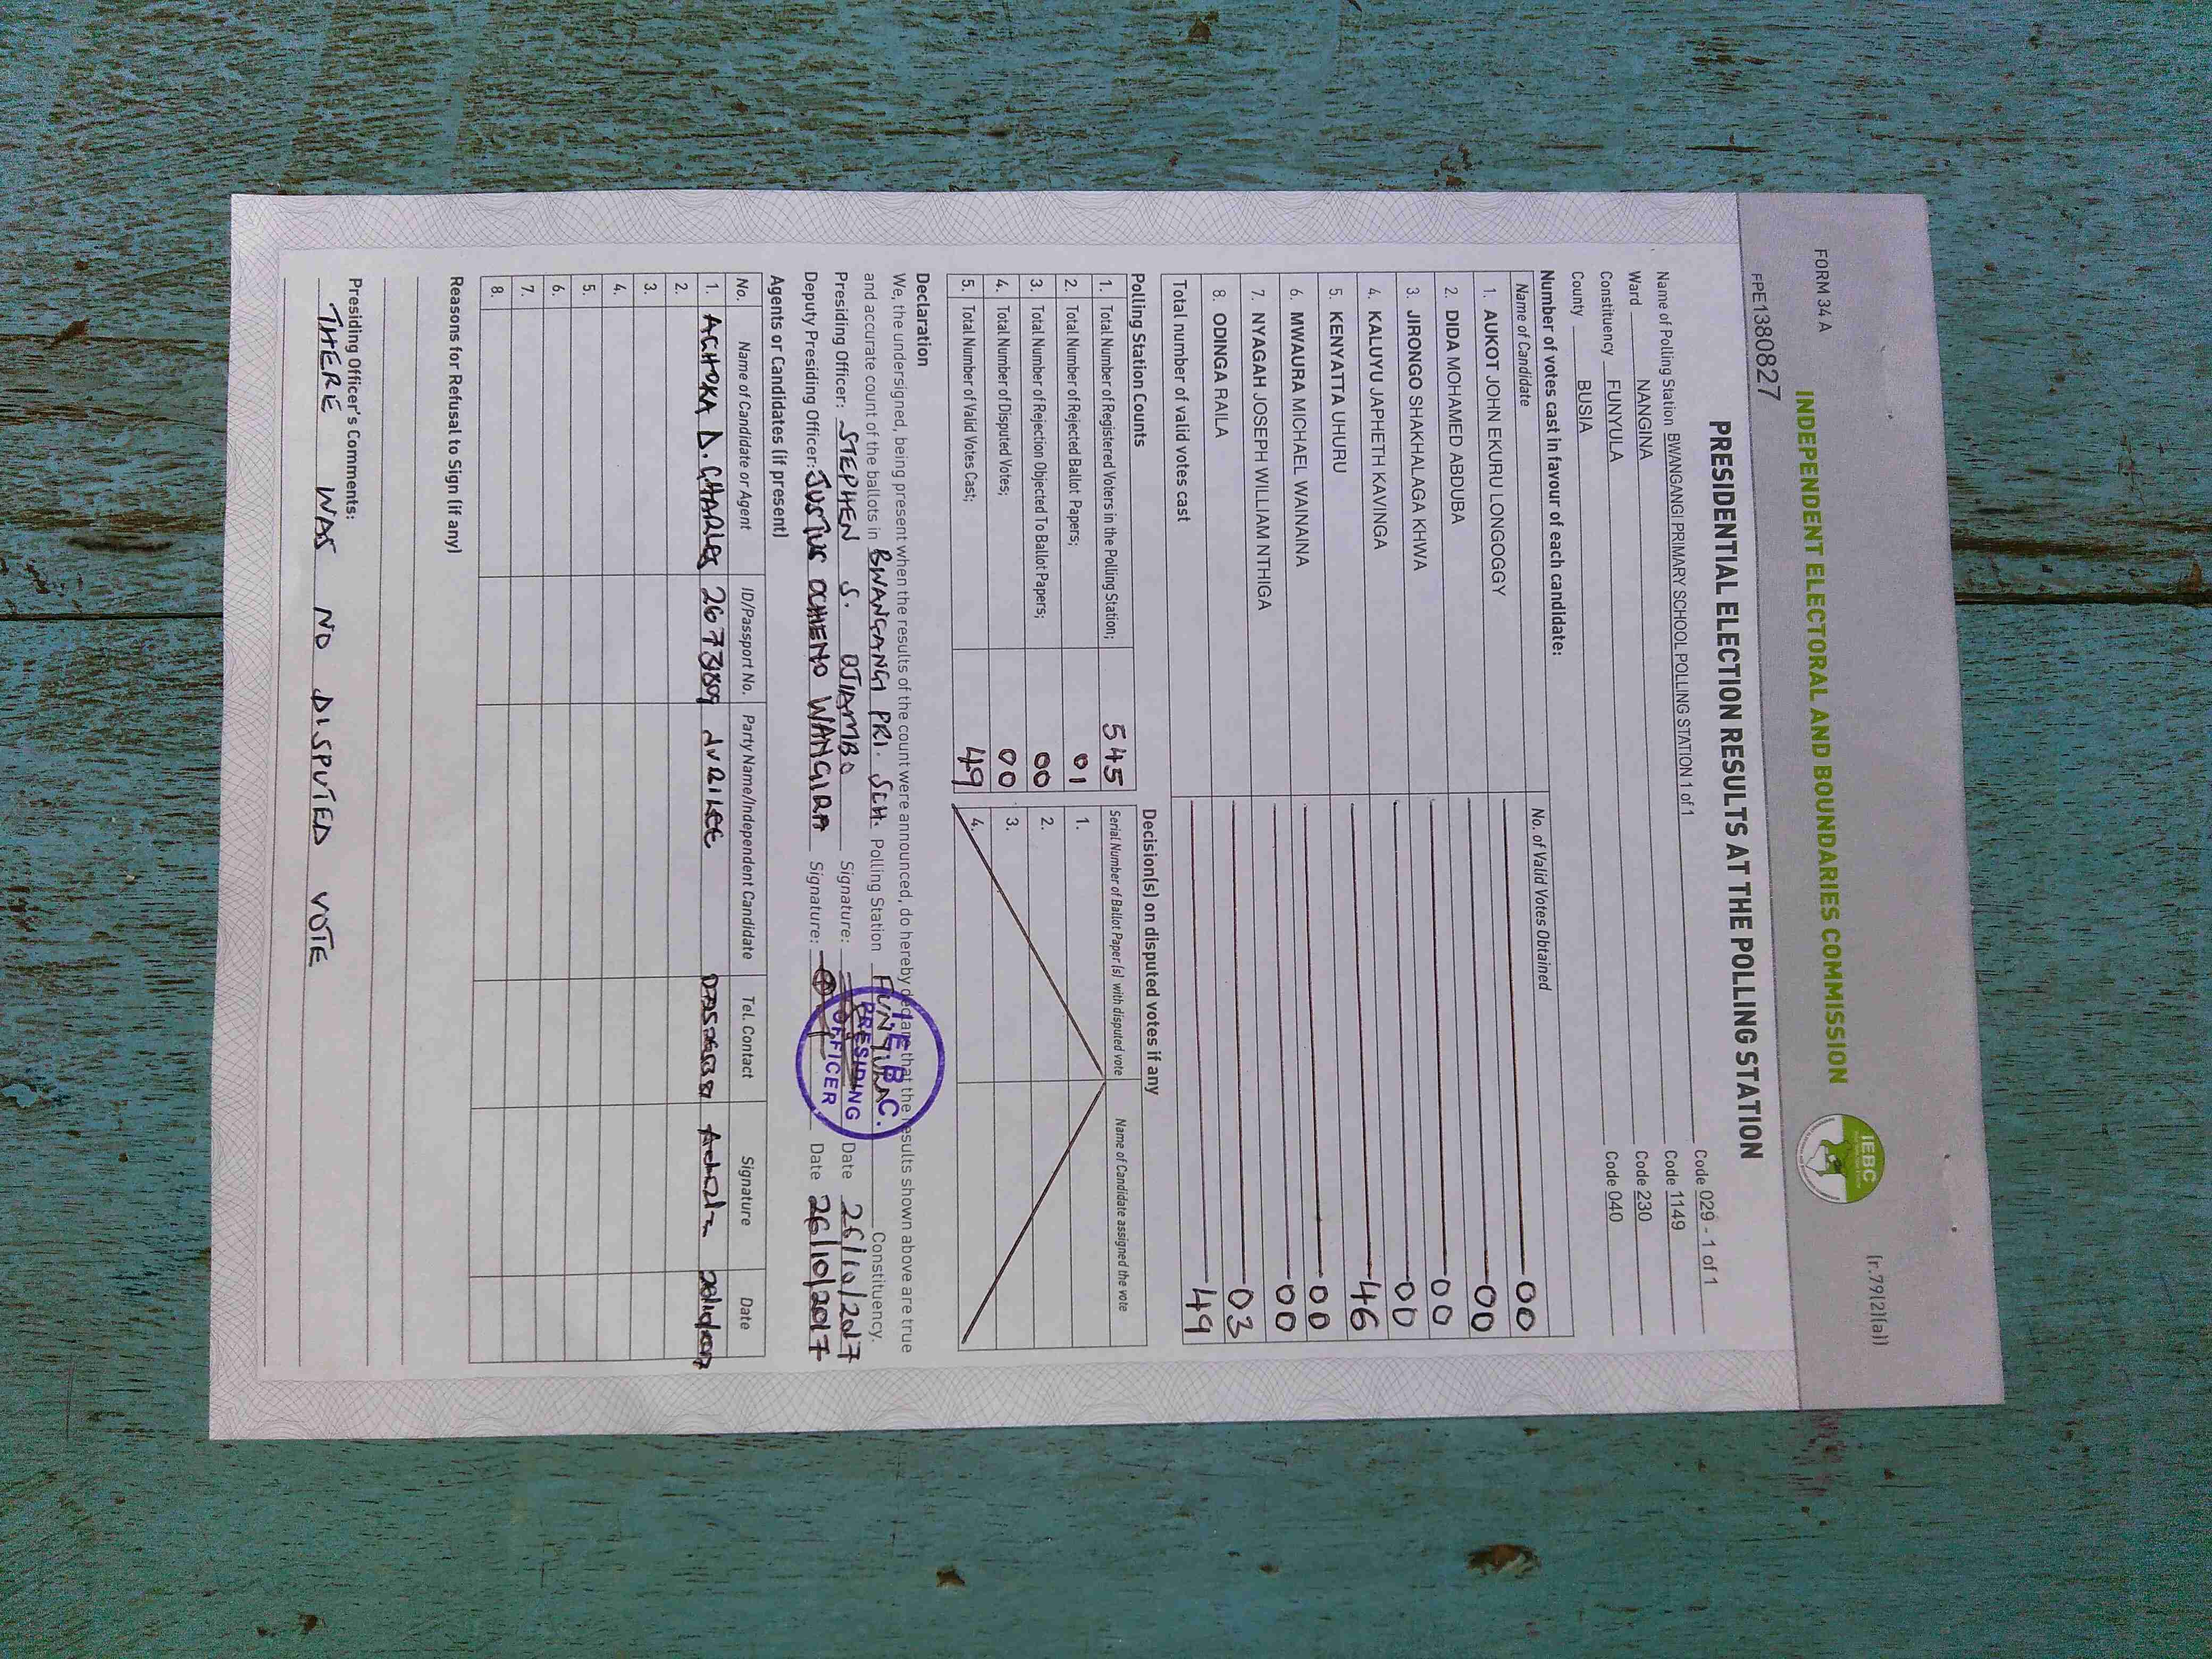 FORM 34 A
(r.79(2)(a))
INDEPENDENT ELECTORAL AND BOUNDARIES COMMISSION
IEBC
FPE1380827
PRESIDENTIAL ELECTION RESULTS AT THE POLLING STATION
Name of Polling Station BWANGANGI PRIMARY SCHOOL POLLING STATION 1 of 1 Code 029 - 1 of 1
Ward NANGINA Code 1149
Constituency FUNYULA Code 230
County BUSIA Code 040
Number of votes cast in favour of each candidate:
Name of Candidate No. of Valid Votes Obtained
1. AUKOT JOHN EKURU LONGOGGY 00
2. DIDA MOHAMED ABDUBA 00
3. JIRONGO SHAKHALAGA KHWA 00
4. KALUYU JAPHETH KAVINGA 00
5. KENYATTA UHURU 46
6. MWAURA MICHAEL WAINAINA 00
7. NYAGAH JOSEPH WILLIAM NTHIGA 00
8. ODINGA RAILA 03
Total number of valid votes cast 49
Polling Station Counts Decision(s) on disputed votes if any
1. Total Number of Registered Voters in the Polling Station; 545 Serial Number of Ballot Paper(s) with disputed vote Name of Candidate assigned the vote
2. Total Number of Rejected Ballot Papers; 01 1.
3 Total Number of Rejection Objected To Ballot Papers; 00 2.
4. Total Number of Disputed Votes; 00 3.
5 Total Number of Valid Votes Cast; 49 4.
Declaration
We, the undersigned, being present when the results of the count were announced, do hereby declare that the results shown above are true
and accurate count of the ballots in BWANGANGI PRI. SCH. Polling Station FUNYULA Constituency.
Presiding Officer: STEPHEN S. OJIAMBO Signature: Date 26/10/2017
Deputy Presiding Officer: JUSTUS OCHIENO WANGIRA Signature: Date 26/10/2017
I.E.B.C.
PRESIDING
OFFICER
Agents or Candidates (if present)
No. Name of Candidate or Agent ID/Passport No. Party Name/Independent Candidate Tel. Contact Signature Date
1. ACHOKA D. CHARLES JUBILEE
2.
3.
4.
5.
6.
7.
8.
Reasons for Refusal to Sign (if any)
Presiding Officer's Comments:
THERE WAS NO DISPUTED VOTE